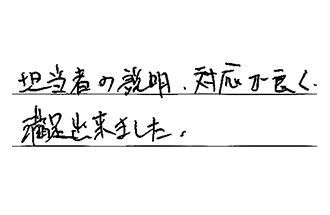 担当者の説明、対応が良く、
満足出来ました。